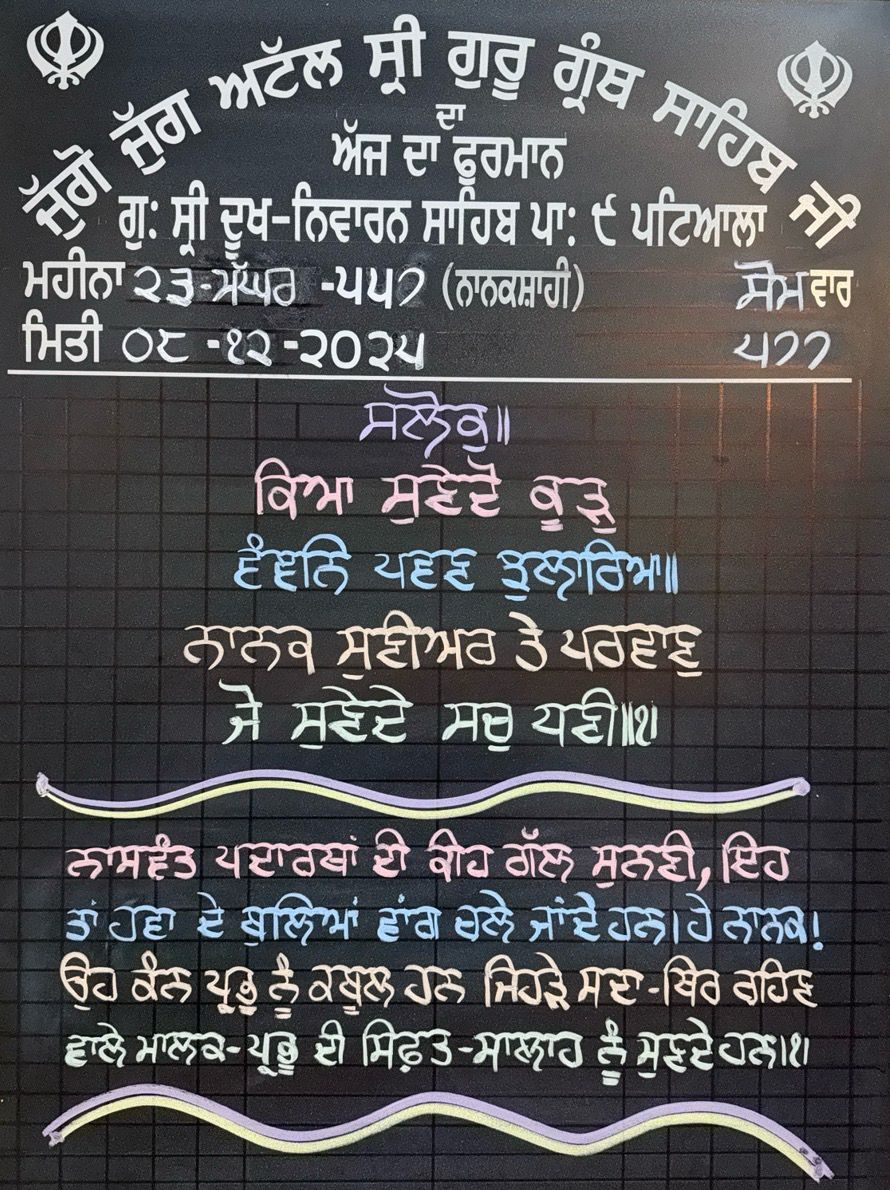 ਜੁੱਗੋ ਜੁੱਗ ਅਟੱਲ ਸ੍ਰੀ ਗੁਰੂ ਗ੍ਰੰਥ ਸਾਹਿਬ ਜੀ
ਦਾ
ਅੱਜ ਦਾ ਫੁਰਮਾਨ
ਗੁ: ਸ੍ਰੀ ਦੂਖ-ਨਿਵਾਰਨ ਸਾਹਿਬ ਪਾ: ੯ ਪਟਿਆਲਾ
ਮਹੀਨਾ ੨੩-ਮੱਘਰ -੫੫੭ (ਨਾਨਕਸ਼ਾਹੀ) ਸੋਮਵਾਰ
ਮਿਤੀ ੦੮ -੧੨ -੨੦੨੫ ੫੭੭
ਸਲੋਕੁ॥
ਕਿਆ ਸੁਣੇਦੋ ਕੂੜੁ
ਵੰਞਨਿ ਪਵਣ ਝੁਲਾਰਿਆ॥
ਨਾਨਕ ਸੁਣੀਅਰ ਤੇ ਪਰਵਾਣੁ
ਜੋ ਸੁਣੇਦੇ ਸਚੁ ਧਣੀ॥੧॥
ਨਾਸਵੰਤ ਪਦਾਰਥਾਂ ਦੀ ਕੀਹ ਗੱਲ ਸੁਨਣੀ, ਇਹ
ਤਾਂ ਹਵਾ ਦੇ ਬੁਲਿਆਂ ਵਾਂਗ ਚਲੇ ਜਾਂਦੇ ਹਨ। ਹੇ ਨਾਨਕ!
ਉਹ ਕੰਨ ਪ੍ਰਭੂ ਨੂੰ ਕਬੂਲ ਹਨ ਜਿਹੜੇ ਸਦਾ-ਥਿਰ ਰਹਿਣ
ਵਾਲੇ ਮਾਲਕ-ਪ੍ਰਭੂ ਦੀ ਸਿਫ਼ਤ-ਸਾਲਾਹ ਨੂੰ ਸੁਣਦੇ ਹਨ।੧।